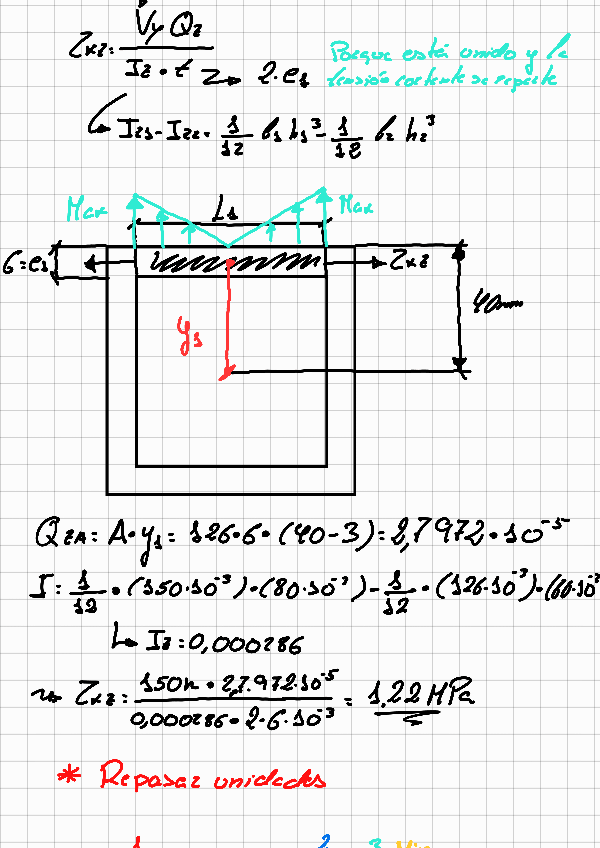 τxz = Vy Qz / Iz · t → 2·e1
Porque está unido y la
tensión cortante se reparte
Iz1 - Iz2 = 1/12 b1 h1³ - 1/12 b2 h2³
Max L1 Max
6 = e1 τxz
40mm
y1
QzA = A · y1 = 126·6·(40-3) = 2,7972·10⁻⁵
I = 1/12 · (150·10⁻³)·(80·10⁻³) - 1/12 · (126·10⁻³)·(60·10⁻³
↳ Iz = 0,000286
τxz = 150N · 2,7972·10⁻⁵ / 0,000286 · 2·6·10⁻³ = 1,22 MPa
* Repasar unidades